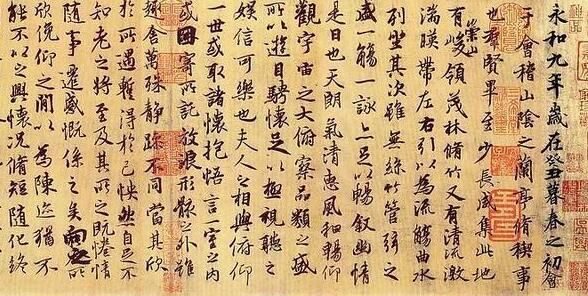 永和九年歲在癸丑暮春之初會
于會稽山陰之蘭亭脩禊事
也羣賢畢至少長咸集此地
有崇山峻領茂林脩竹又有清流激
湍暎帶左右引以為流觴曲水
列坐其次雖無絲竹管弦之
盛一觴一詠亦足以暢敘幽情
是日也天朗氣清惠風和暢仰
觀宇宙之大俯察品類之盛
所以遊目騁懷足以極視聽之
娛信可樂也夫人之相與俯仰
一世或取諸懷抱悟言一室之內
或因寄所託放浪形骸之外雖
趣舍萬殊静躁不同當其欣
於所遇暫得於己怏然自足不
知老之將至及其所之既惓情
隨事遷感慨係之矣向之所
欣俛仰之閒以為陳迹猶不
能不以之興懷況脩短隨化終